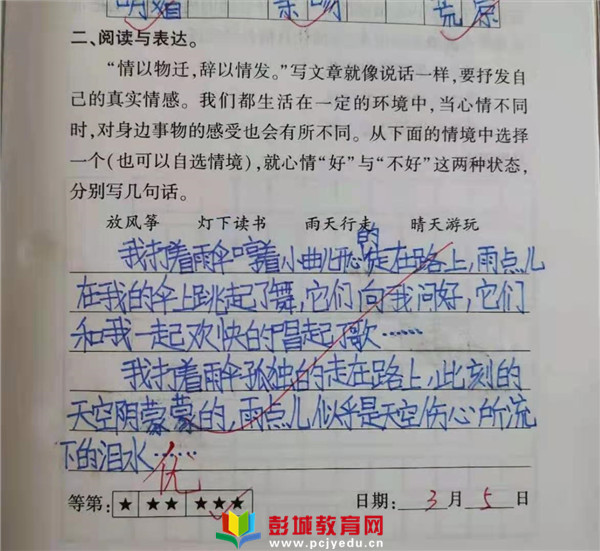 明媚 亲吻 荒原
二、阅读与表达。
“情以物迁，辞以情发。”写文章就像说话一样，要抒发自
己的真实情感。我们都生活在一定的环境中，当心情不同
时，对身边事物的感受也会有所不同。从下面的情境中选择
一个(也可以自选情境)，就心情“好”与“不好”这两种状态，
分别写几句话。
放风筝 灯下读书 雨天行走 晴天游玩
我打着雨伞哼着小曲儿开心的走在路上，雨点儿
在我的伞上跳起了舞，它们向我问好，它们
和我一起欢快的唱起了歌……
我打着雨伞孤独的走在路上，此刻的
天空阴蒙蒙的，雨点儿似乎是天空伤心所流
下的泪水……
优
等第：★ ★★ ★★★ 日期：3月5日
彭城教育网
www.pcjyedu.cn